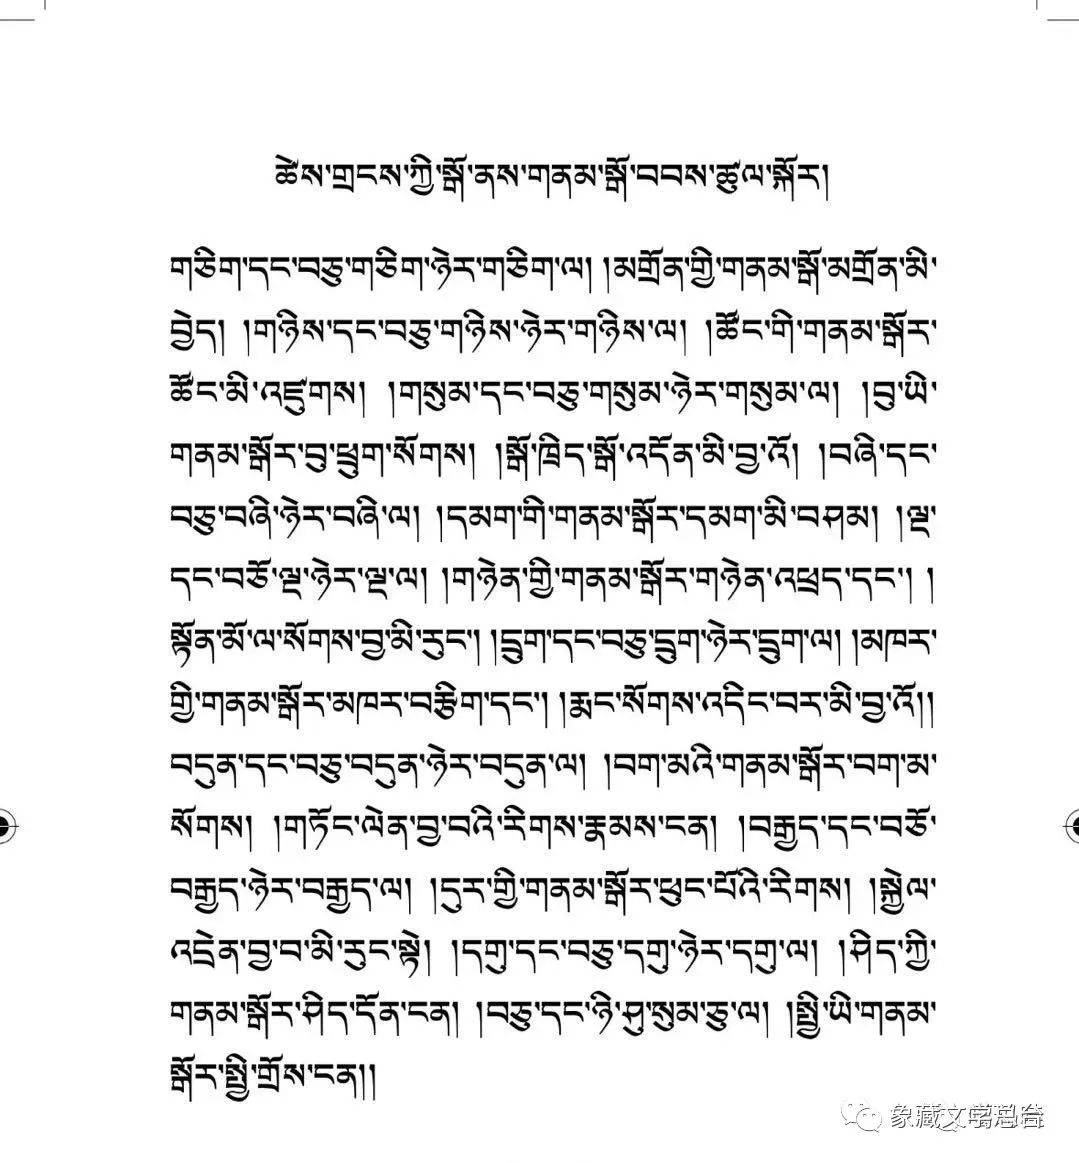 ཚེས་གྲངས་ཀྱི་སྒོ་ནས་གནམ་སྒོ་བབས་ཚུལ་སྐོར།
གཅིག་དང་བཅུ་གཅིག་ཉེར་གཅིག་ལ། །མགྲོན་གྱི་གནམ་སྒོ་མགྲོན་མི་
བྱེད། །གཉིས་དང་བཅུ་གཉིས་ཉེར་གཉིས་ལ། །ཚོང་གི་གནམ་སྒོར་
ཚོང་མི་འཛུགས། །གསུམ་དང་བཅུ་གསུམ་ཉེར་གསུམ་ལ། །བུ་ཡི་
གནམ་སྒོར་བུ་ཕྲུག་སོགས། །སྒོ་ཁྲིད་སྒོ་འདོན་མི་བྱ་འོ། །བཞི་དང་
བཅུ་བཞི་ཉེར་བཞི་ལ། །དམག་གི་གནམ་སྒོར་དམག་མི་བཤམ། །ལྔ་
དང་བཅོ་ལྔ་ཉེར་ལྔ་ལ། །གཉེན་གྱི་གནམ་སྒོར་གཉེན་འཕྲད་དང་། །
སྟོན་མོ་ལ་སོགས་བྱ་མི་རུང་། །དྲུག་དང་བཅུ་དྲུག་ཉེར་དྲུག་ལ། །མཁར་
གྱི་གནམ་སྒོར་མཁར་བརྩིག་དང་། །རྨང་སོགས་འདིང་བར་མི་བྱ་འོ།།
བདུན་དང་བཅུ་བདུན་ཉེར་བདུན་ལ། །བག་མའི་གནམ་སྒོར་བག་མ་
སོགས། །གཏོང་ལེན་བྱ་བའི་རིགས་རྣམས་ངན། །བརྒྱད་དང་བཅོ་
བརྒྱད་ཉེར་བརྒྱད་ལ། །དུར་གྱི་གནམ་སྒོར་ཕུང་པོའི་རིགས། །སྐྱེལ་
འདྲེན་བྱ་བ་མི་རུང་སྟེ། །དགུ་དང་བཅུ་དགུ་ཉེར་དགུ་ལ། །ཤིད་ཀྱི་
གནམ་སྒོར་ཤིད་དོན་ངན། །བཅུ་དང་ཉི་ཤུ་སུམ་ཅུ་ལ། །སྤྱི་ཡི་གནམ་
སྒོར་སྤྱི་གྲོས་ངན།།
象藏文